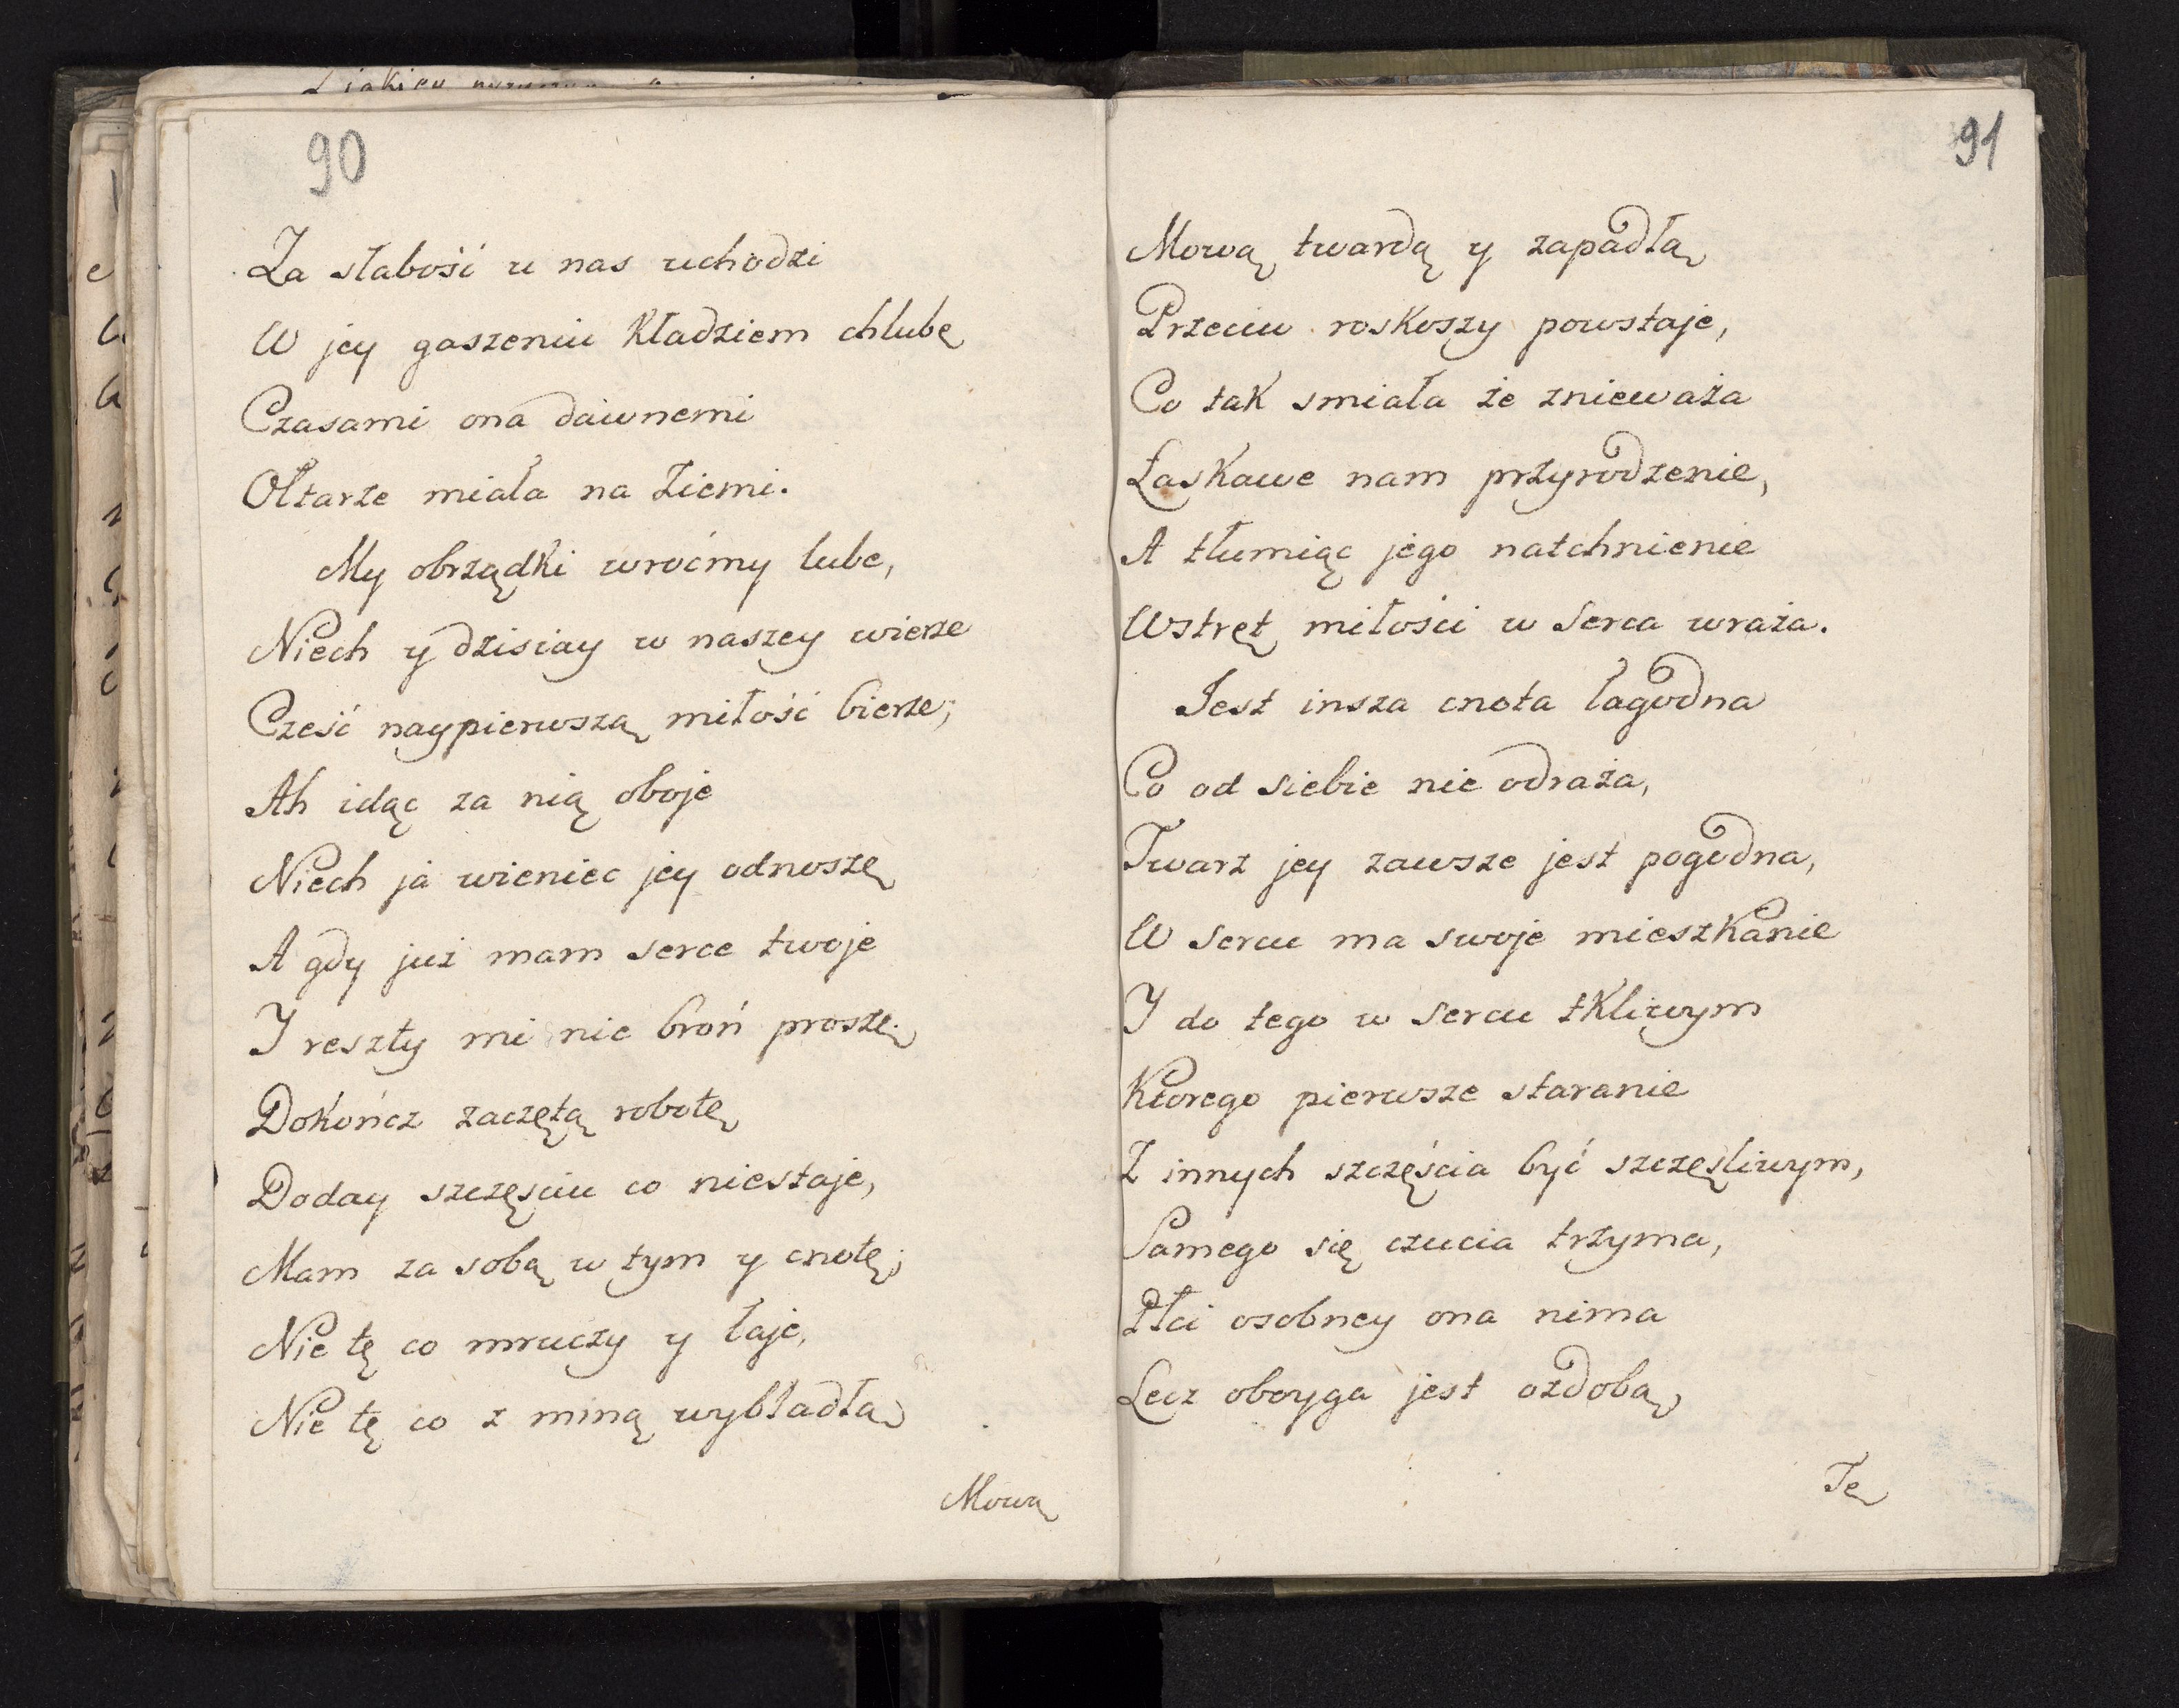 90
Za słabość u nas uchodzi
W jey gaszeniu kładziem chlubę
Czasami ona dawnemi
Ołtarze miała na ziemi.
My obrządki wroćmy lube,
Niech y dzisiay w naszey wierze
Cześć naypierwszą miłość bierze;
Ah idąc za nią oboje
Niech ja wieniec jey odnoszę
A gdy już mam serce twoje
I reszty mi nie broń proszę.
Dokończ zaczętą robotę
Doday szczęsciu co niestaje,
Mam za sobą w tym y cnotę;
Nie tę co mruczy y łaje,
Nie tę co z miną wybladłą
Mową
91
Mową twardą y zapadłą
Przeciw roskoszy powstaje,
Co tak smiała że znieważa
Łaskawe nam przyrodzenie,
A tłumiąc jego natchnienie
Wstręt miłości w serca wraża.
Jest insza cnota łagodna
Co od siebie nie odraża,
Twarz jey zawsze jest pogodna,
W sercu ma swoje mieszkanie
I do tego w sercu tkliwym
Ktorego pierwsze staranie
Z innych szczęścia być szczęsliwym,
Samego się czucia trzyma,
Płci osobney ona nima
Lecz oboyga jest ozdobą,
Tę